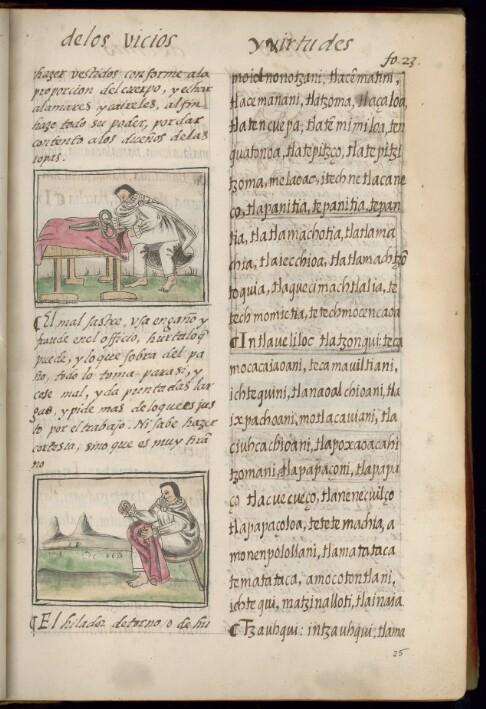 de los vicios
y virtudes
fo. 23.
hazer vestidos conforme ala
proporcion del cuerpo, y echar
alamares y caireles, al fin
haze todo su poder, por dar
contento a los dueños de las
ropas.
¶ El mal sastre, vsa engaño y
fraude en el officio, hurta loq̃
puede, y lo que sobra del pa
ño, todo lo toma para si, y
cose mal, y da puntadas lar
gas, y pide mas de lo que es jus
to por el trabajo. Ni sabe hazer
cortesia, sino que es muy tira
no
¶ El hilador de torno, o de hu
moiolnonotzani, tlacẽmatini,
tlacemanani, tlatzoma, tlacaloa,
tlatencuepa, tlatẽmimiloa, ten
quatonoa, tlatepitzço, tlatepitzi
tzoma, melaoac, itech netlacane
co, tlapanitia, tepanitia, tepan
tia, tlatlamachotia, tlatlama
chia, tlaiecchioa, tlatlamachtz̃o
toquia, tlaquecimachtlalia, te
tech momictia, tetechmocencaoa
¶ Intlaueliloc tlatzonqui: teca
mocacaiaoani, tecamauiltiani,
ichtequini, tlanaoalchioani, tla
ixpachoani, motlacauiani, tla
ciuhcachioani, tlapoxaoacahi
tzomani, tlapapaçoni, tlapapa
ço tlacuecueço, tlanenecuilço
tlapapaçoloa, tetetemachia, a
monenpololiani, tlamatataca
tematataca, amocotontlani,
ichtequi, matzinalloti, tlainaia
¶ Tzauhqui: intzauhqui, tlama
25